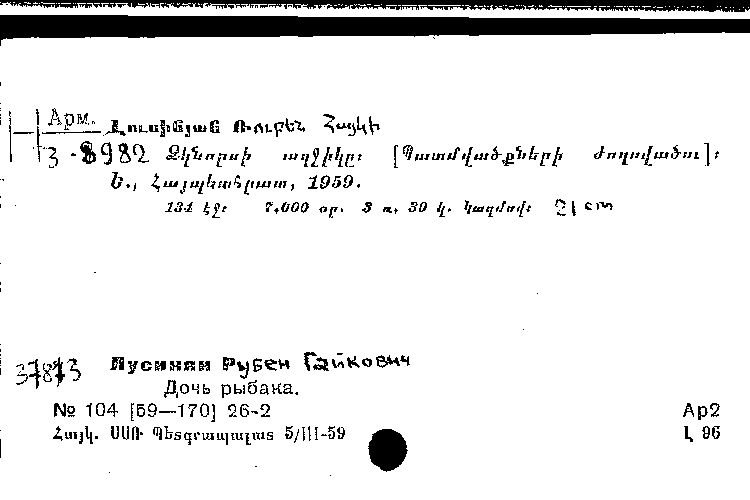 Арм. Լուսինյան Ռուբեն Հայկի
3-8982 Ձկնորսի աղջիկը։ [Պատմվածքների ժողովածու]։
Ե., Հայպետհրատ, 1959.
134 էջ։ 7.000 օր. 3 ռ. 30 կ. կազմով։ 21 cm
37873 Лусинян Рубен Гайкович
Дочь рыбака.
№ 104 [59—170] 26-2 Ар2
Հայկ. ՍՍՌ Պետգրապալատ 5/III-59 Լ 96